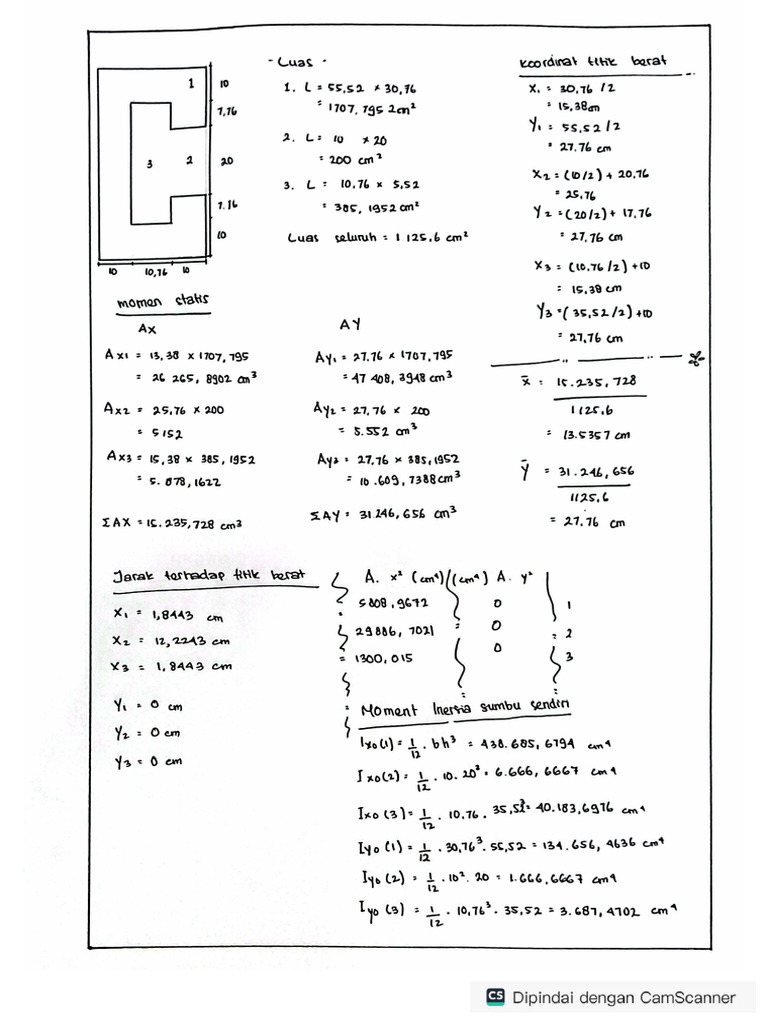 1
10
7,76
3
2
20
7.76
10
10
10,76
10
- Luas -
1. L = 55,52 × 30,76
= 1707,795 2cm²
2. L = 10 × 20
= 200 cm²
3. L = 10,76 × 5,52
= 385, 1952 cm²
Luas seluruh = 1 125,6 cm²
Koordinat titik berat
X₁ = 30,76 /2
= 15,38cm
Y₁ = 55,52/2
= 27.76 cm
X₂ = (10/2) + 20,76
= 25,76
Y₂ = (20/2) + 17,76
= 27,76 cm
X₃ = (10,76/2) +10
= 15,38 cm
Y₃ = (35,52/2) +10
= 27,76 cm
momen statis
Ax
Ax1 = 13,38 × 1707,795
= 26 265, 8902 cm³
Ax2 = 25,76 × 200
= 5152
Ax3 = 15,38 × 385,1952
= 5. 078,1622
ΣAX = 15.235,728 cm3
AY
Ay₁ = 27.76 × 1707,795
= 47 408, 3948 cm³
Ay₂ = 27,76 × 200
= 5.552 cm³
Ay₃ = 27,76 × 385,1952
= 10.609, 7388 cm³
ΣAY = 31.246,656 cm³
x̄ = 15.235,728
1125,6
= 13.5357 cm
Ȳ = 31.246,656
1125,6
= 27.76 cm
Jarak terhadap titik berat
X₁ = 1,8443 cm
X₂ = 12,2243 cm
X₃ = 1,8443 cm
Y₁ = 0 cm
Y₂ = 0 cm
Y₃ = 0 cm
A. x² (cm⁴) (cm⁴) A. y²
5808,9672 0 1
29886, 7021 = 0 = 2
= 1300,015 0 3
Moment Inersia sumbu sendiri
Ixo(1) = 1/12 . bh³ = 438.685,6794 cm⁴
Ixo(2) = 1/12 . 10. 20³ = 6.666,6667 cm⁴
Ixo (3) = 1/12 . 10,76. 35,52³ = 40.183,6976 cm⁴
Iyo (1) = 1/12 . 30,76³. 55,52 = 134.656, 4636 cm⁴
Iyo (2) = 1/12 . 10³. 20 = 1.666,6667 cm⁴
Iyo (3) = 1/12 . 10,76³. 35,52 = 3.687,4702 cm⁴
CS Dipindai dengan CamScanner